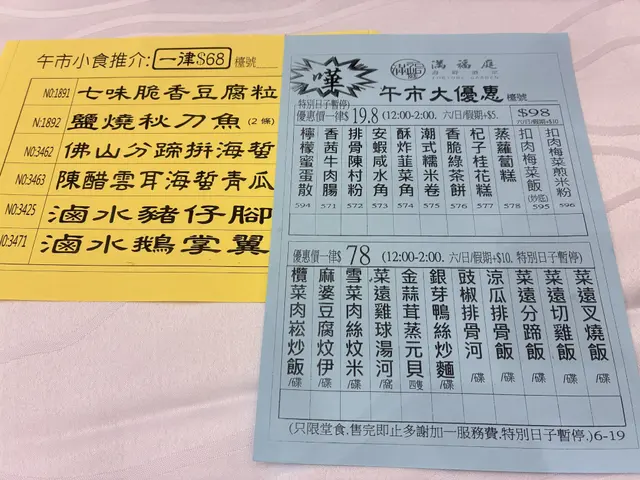 午市小食推介: 一律$68 檯號
NO:1891 七味脆香豆腐粒
N:1892 鹽燒秋刀魚 (2 條)
NO:3462 佛山分蹄拼海蜇
NO:3463 陳醋雲耳海蜇青瓜
NO:3425 滷水豬仔腳
NO:3471 滷水鵝掌翼
滿福庭
嘩 午市大優惠 檯號
特別日子暫停)
優惠價一律$ 19.8 (12:00-2:00. 六/日/假期+$5.
$98
檸檬蜜蛋散 594
香茜牛肉腸 571
排骨陳村粉 572
安蝦咸水角 573
酥炸韮菜角 574
潮式糯米卷 575
香脆綠茶餅 576
杞子桂花糕 577
蒸蘿蔔糕 578
扣肉梅菜飯 (炒底) 595
扣肉梅菜煎米粉 596
優惠價一律$ 78 (12:00-2:00. 六/日/假期+$10. 特別日子暫停)
欖菜肉崧炒飯 /碟
麻婆豆腐炆伊 /碟
雪菜肉絲炆米 /碟
菜遠雞球湯河 /窩
金蒜茸蒸元貝 四隻
銀芽鴨絲炒麵 /碟
豉椒排骨河 /碟
涼瓜排骨飯 /碟
菜遠分蹄飯 /碟
菜遠切雞飯 /碟
菜遠叉燒飯 /碟
(只限堂食,售完即止多謝加一服務費.特別日子暫停.)6-19